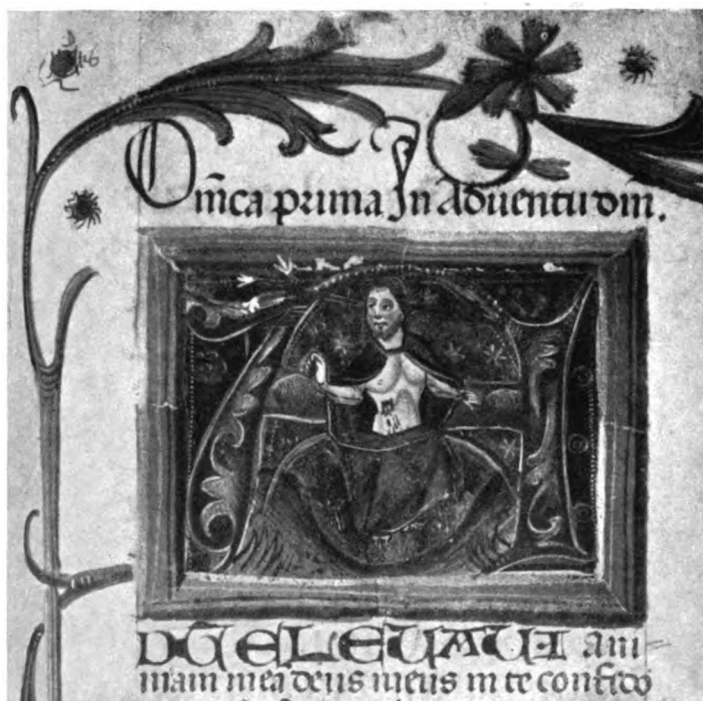 Dm̄ca prima In Aduentu dm̄.
AD TE LEUAUI ani=
mam meā deus meus in te confido